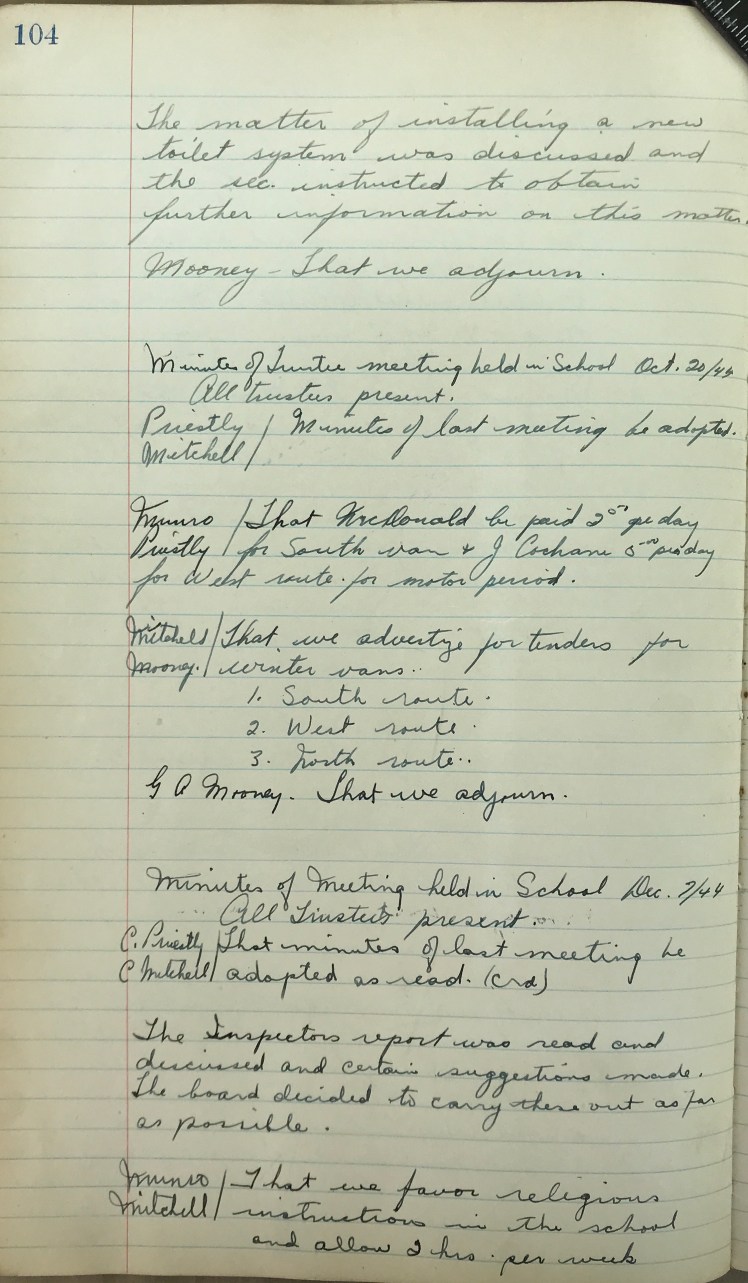 104
The matter of installing a new
toilet system was discussed and
the sec. instructed to obtain
further information on this matter.
Mooney - That we adjourn.
Minutes of Trustee meeting held in School Oct. 20/44
All trustees present.
Priestly / Minutes of last meeting be adopted.
Mitchell /
Munro / That McDonald be paid 2⁰⁰ per day
Priestly / for South van & J Cochane 5⁰⁰ per day
for West route for motor period.
Mitchell / That we advertize for tenders for
Mooney. / winter vans..
1. South route.
2. West route.
3. North route..
G A Mooney. That we adjourn.
Minutes of Meeting held in School Dec. 7/44
All Trustees present.
C. Priestly / That minutes of last meeting be
C Mitchell / adopted as read. (crd)
The Inspectors report was read and
discussed and certain suggestions made.
The board decided to carry these out as far
as possible.
Munro / That we favor religious
Mitchell / instructions in the school
and allow 2 hrs. per week